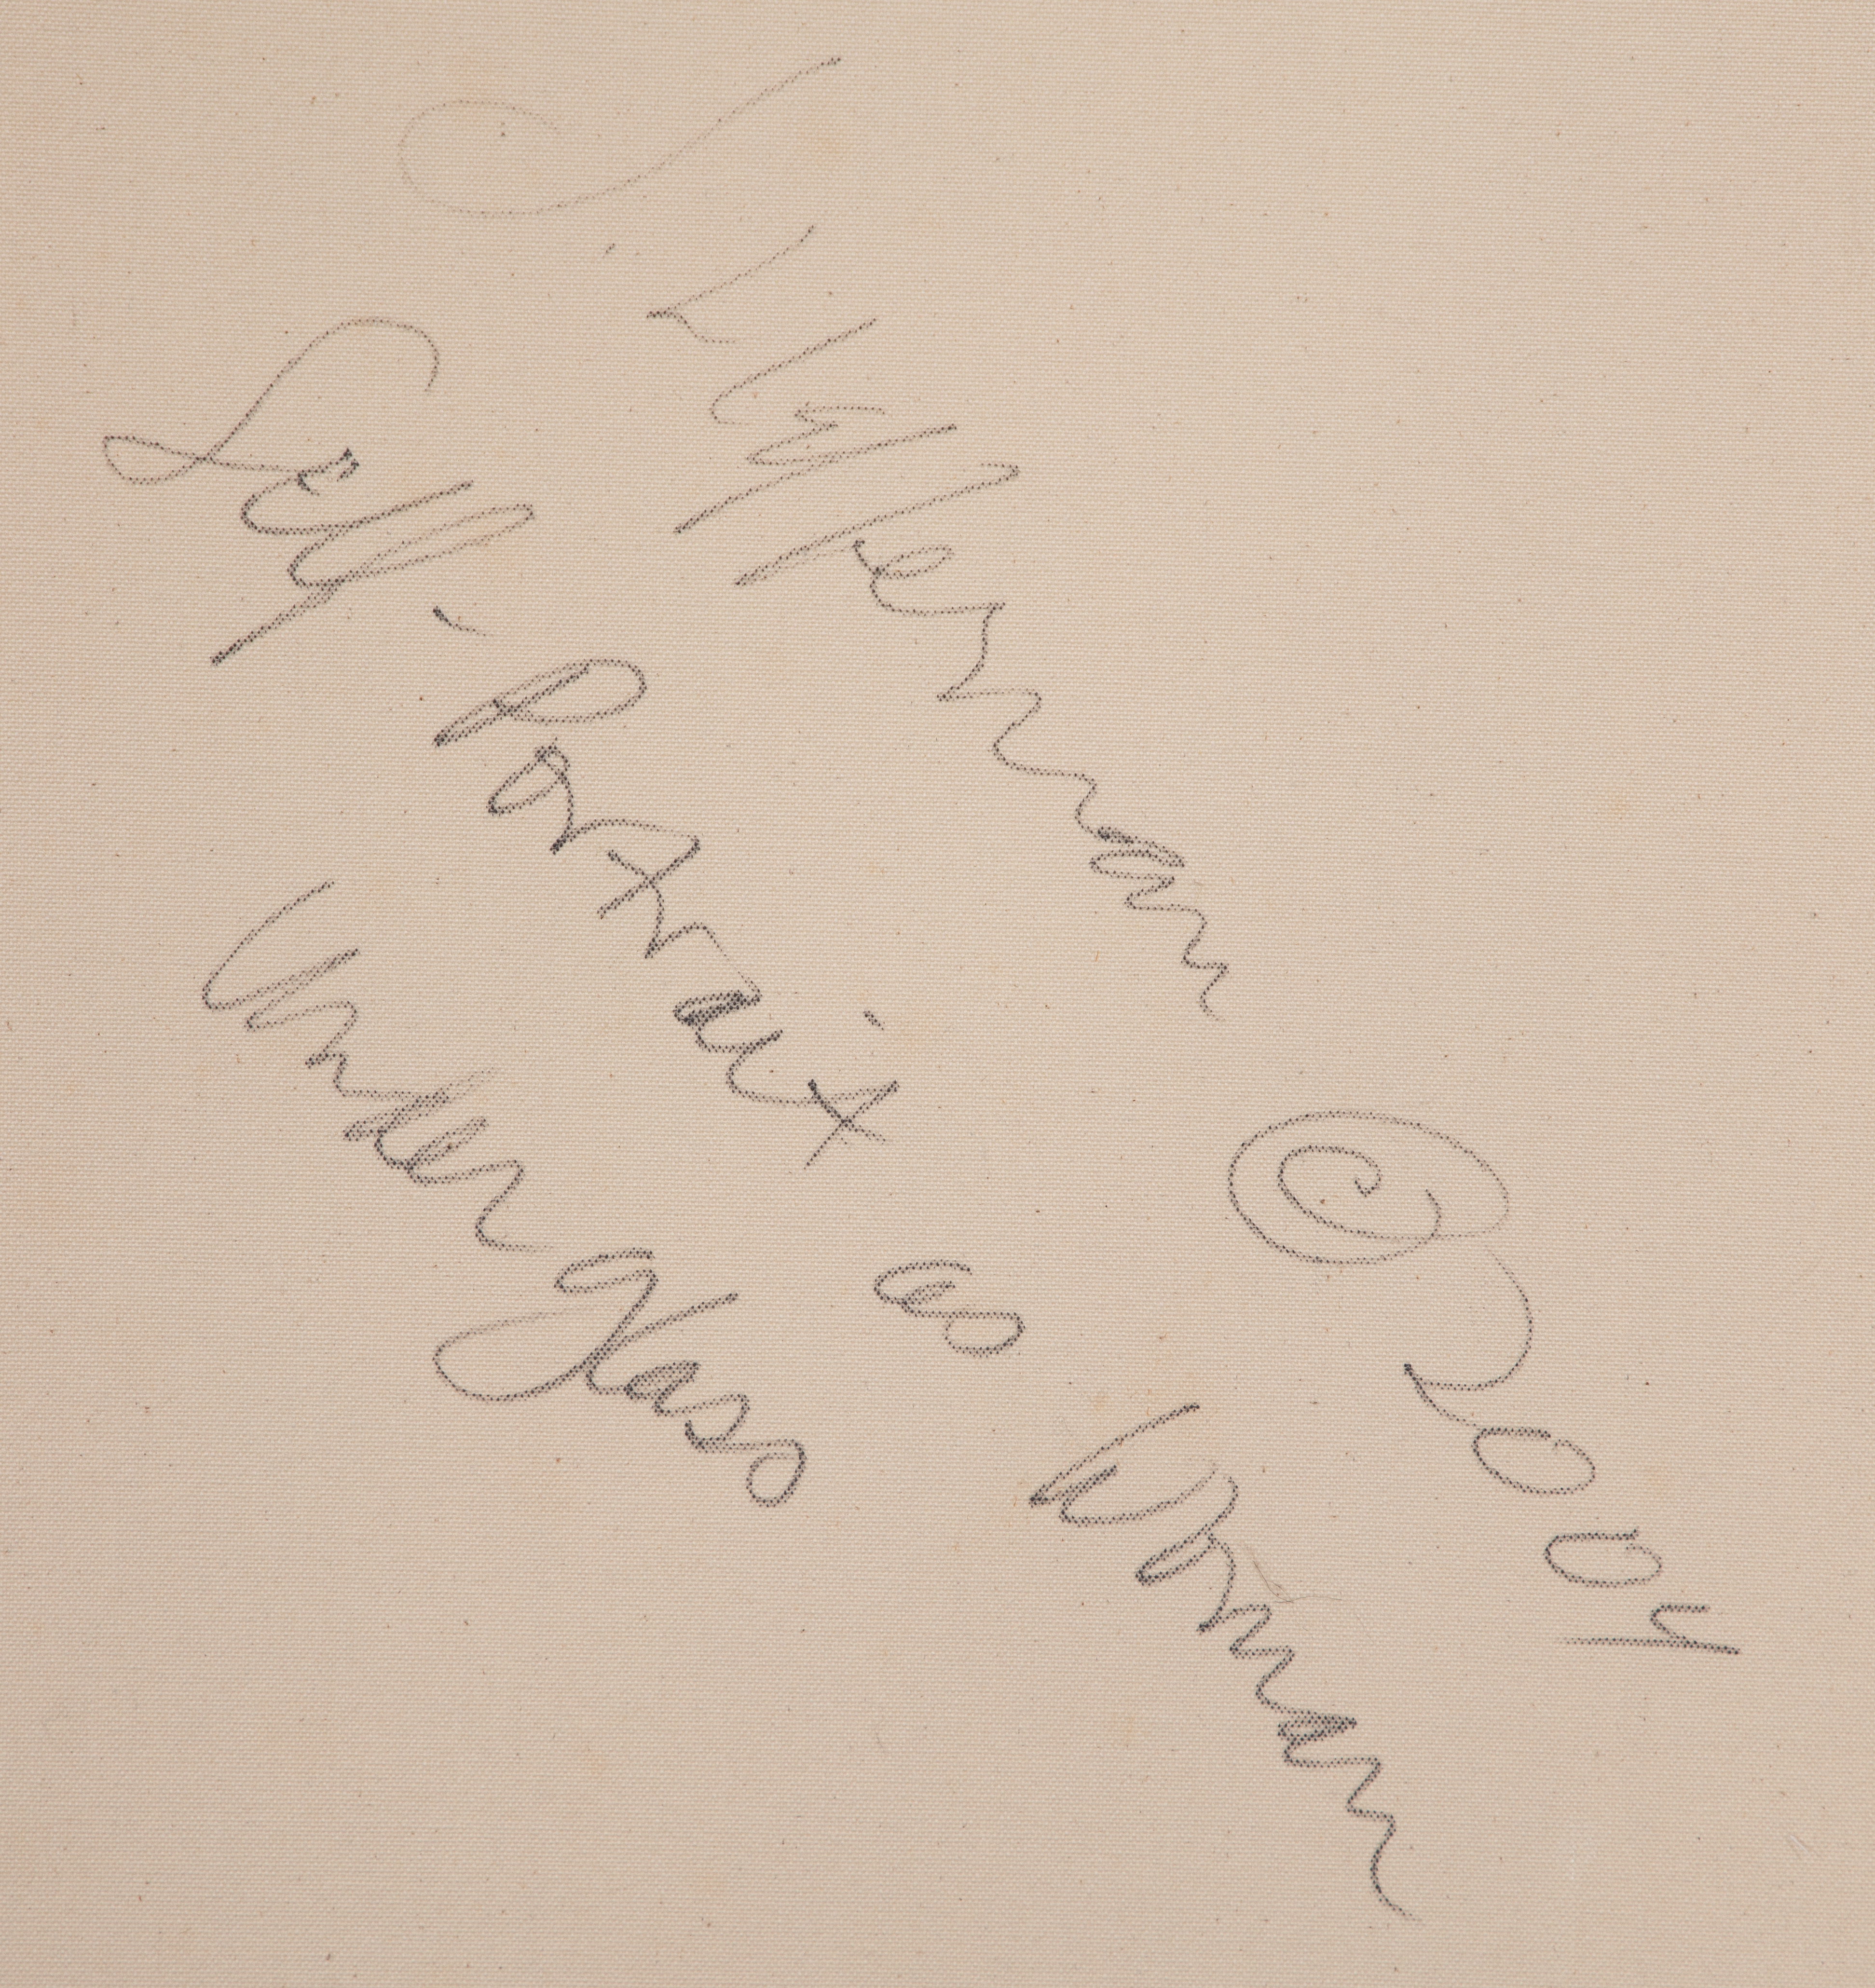 J. Heffernan © 2004
Self-Portrait as Woman
Under Glass